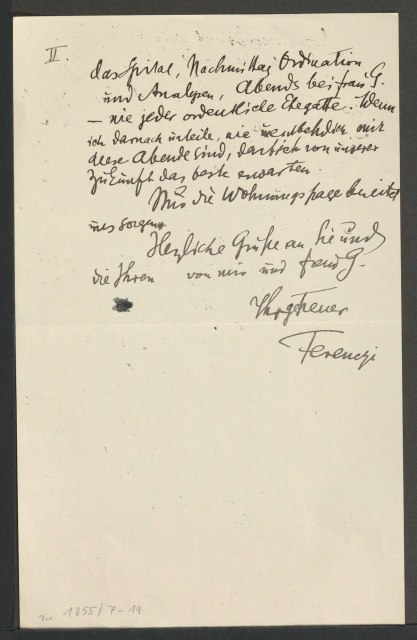 II.
das Spital, Nachmittag Ordination
und Analysen, Abends bei frau G.
— wie jeder ordentliche Ehegatte. Wenn
ich darnach urteile, wie unentbehrlich mir
diese Abende sind, darf ich von unserer
Zukunft das beste erwarten.
Nur die Wohnungsfrage bereitet
uns Sorgen.
Herzliche Grüße an Sie und
die Ihren von mir und frau G.
Ihr getreuer
Ferenczi
1055/7-14